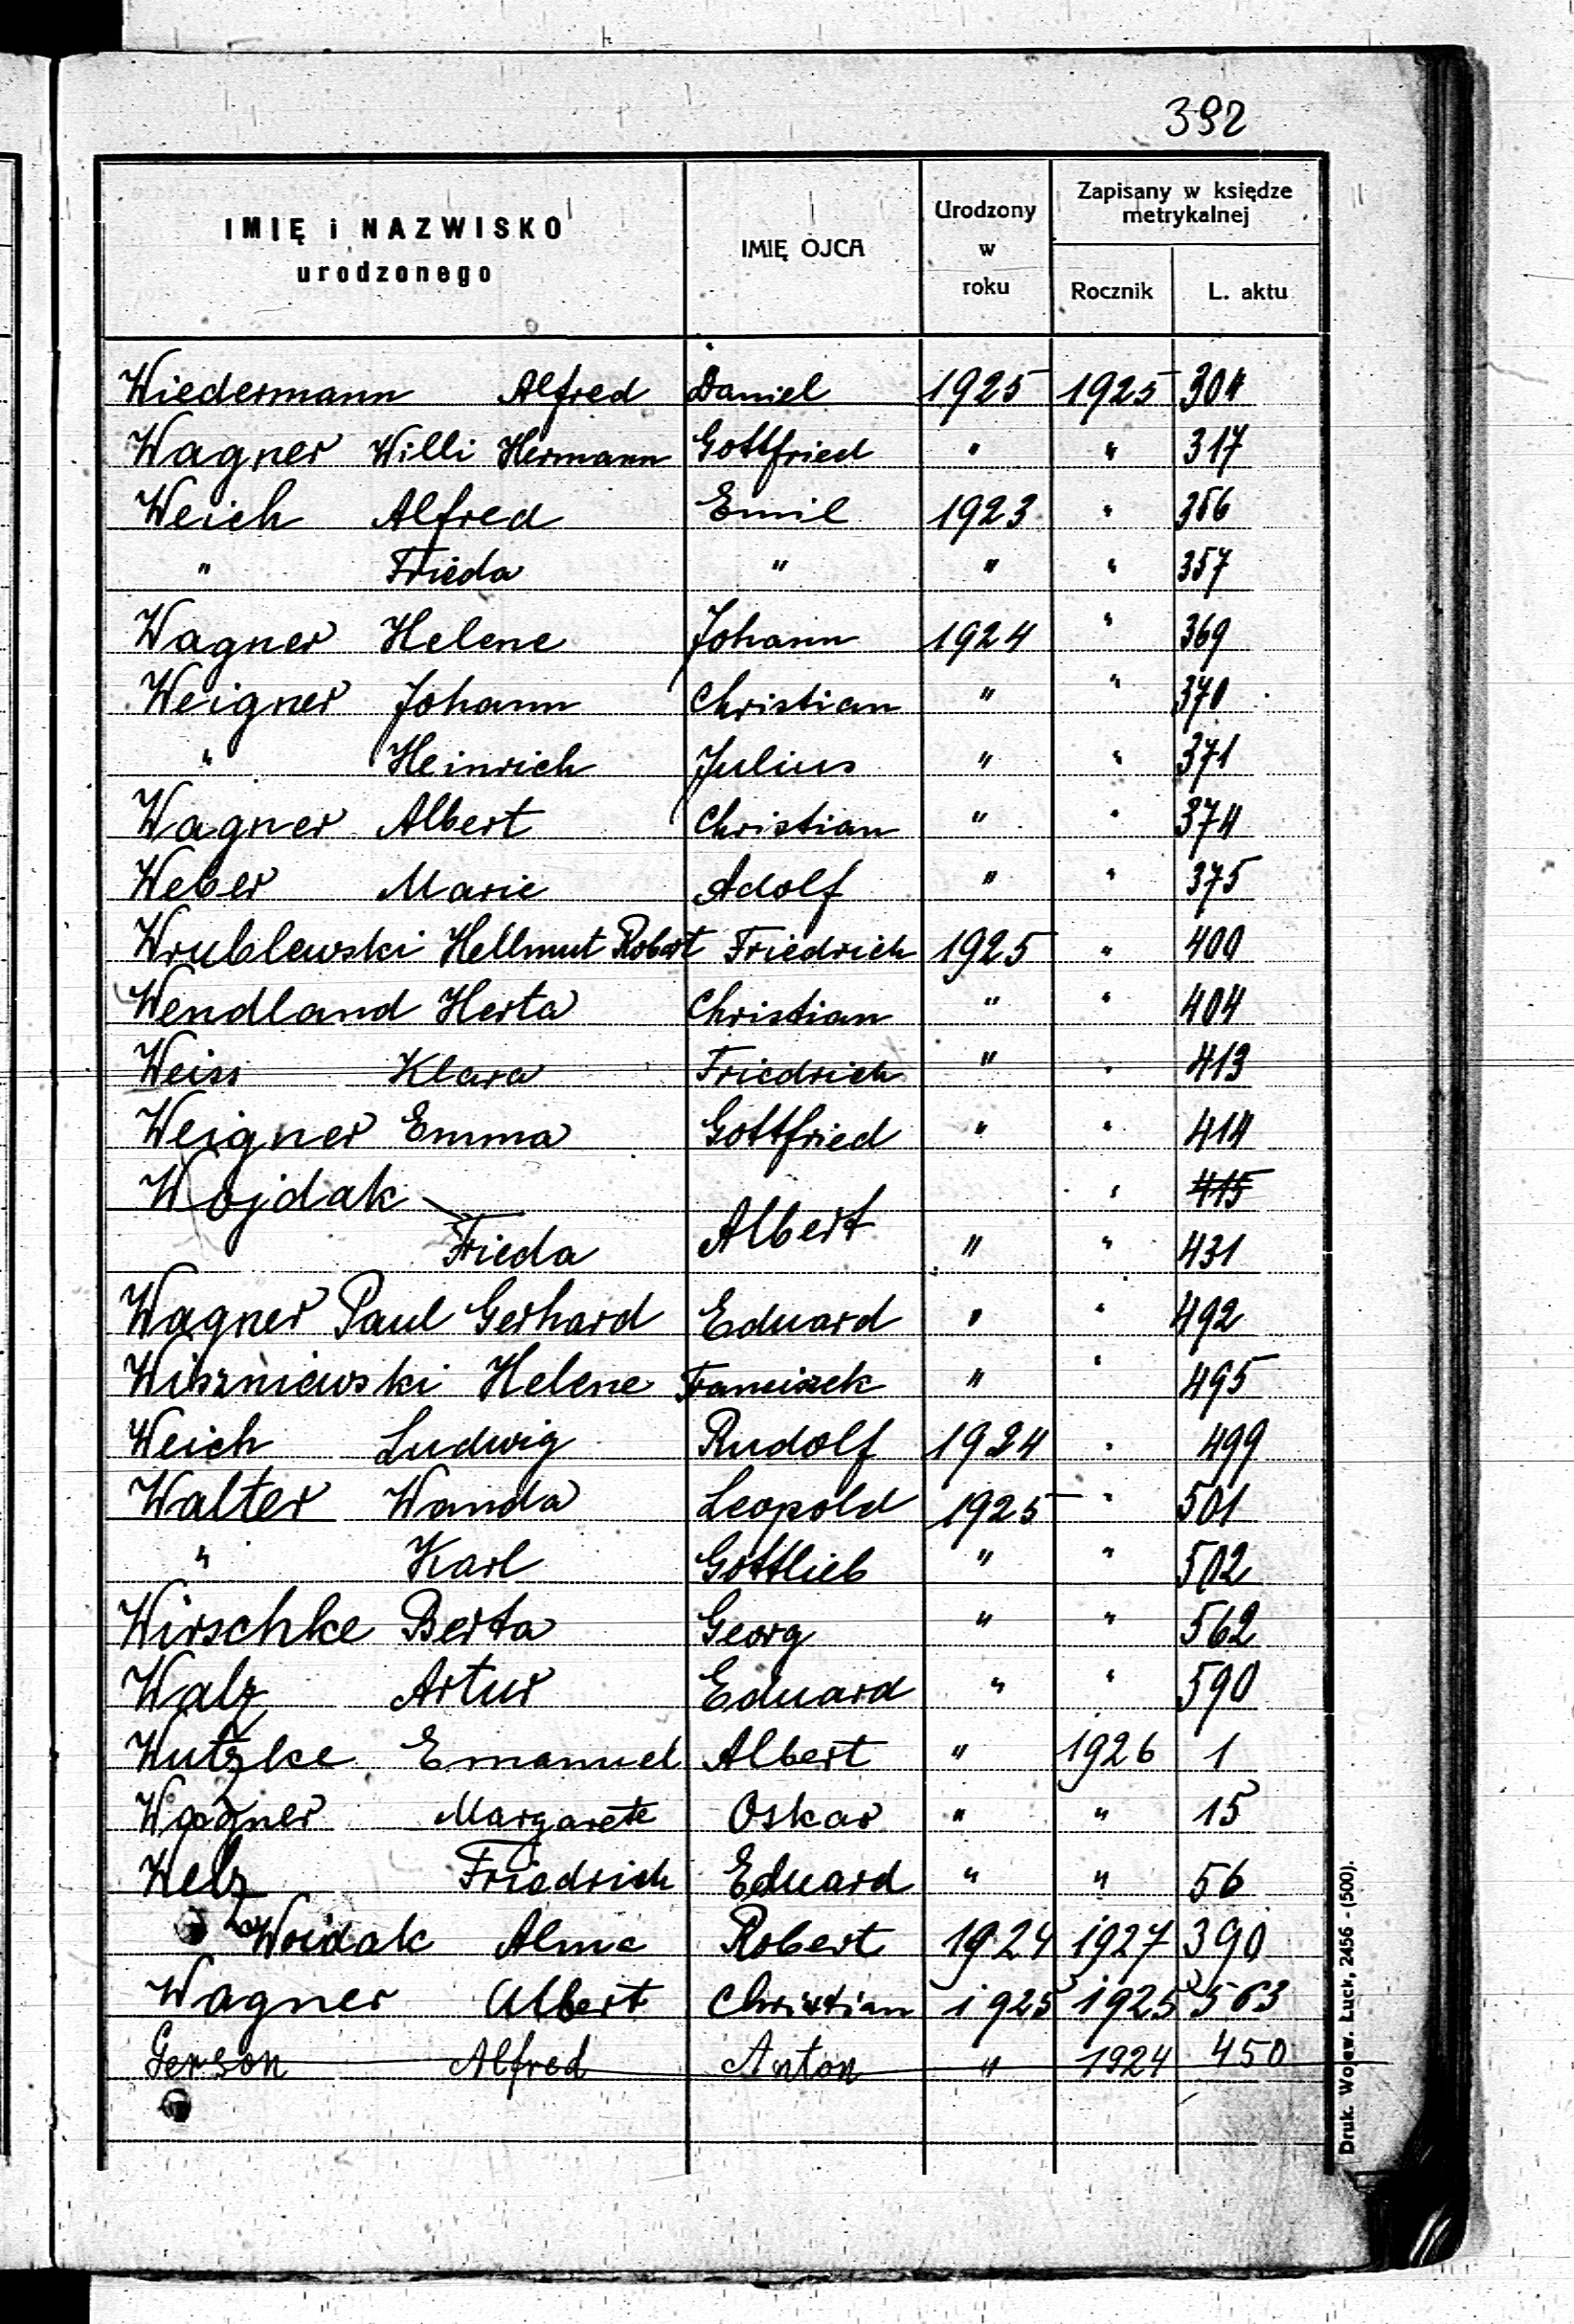 392
IMIĘ i NAZWISKO urodzonego IMIĘ OJCA Urodzony w roku Zapisany w księdze metrykalnej
Rocznik L. aktu
Wiedermann Alfred Daniel 1925 1925 304
Wagner Willi Hermann Gottfried " " 317
Weich Alfred Emil 1923 " 356
" Frieda " " " 357
Wagner Helene Johann 1924 " 369
Weigner Johann Christian " " 370
" Heinrich Julius " " 371
Wagner Albert Christian " " 374
Weber Marie Adolf " " 375
Wrublewski Hellmut Robert Friedrich 1925 " 400
Wendland Herta Christian " " 404
Weiss Klara Friedrich " " 413
Weigner Emma Gottfried " " 414
Wojdak " 415
Frieda Albert " " 431
Wagner Paul Gerhard Eduard " " 492
Wiszniewski Helene Franciszek " " 495
Weich Ludwig Rudolf 1924 " 499
Walter Wanda Leopold 1925 " 501
" Karl Gottlieb " " 502
Wirschke Berta Georg " " 562
Walz Artur Eduard " " 590
Wutzke Emanuel Albert " 1926 1
Wagner Margarete Oskar " " 15
Welz Friedrich Eduard " " 56
Woidak Alma Robert 1924 1927 390
Wagner Albert Christian 1925 1925 563
Gerson Alfred Anton " 1924 450
Druk. Wojew. Łuck, 2456 - (500).